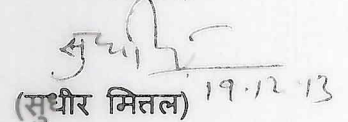 सुधीर
19.12.13
(सुधीर मित्तल)